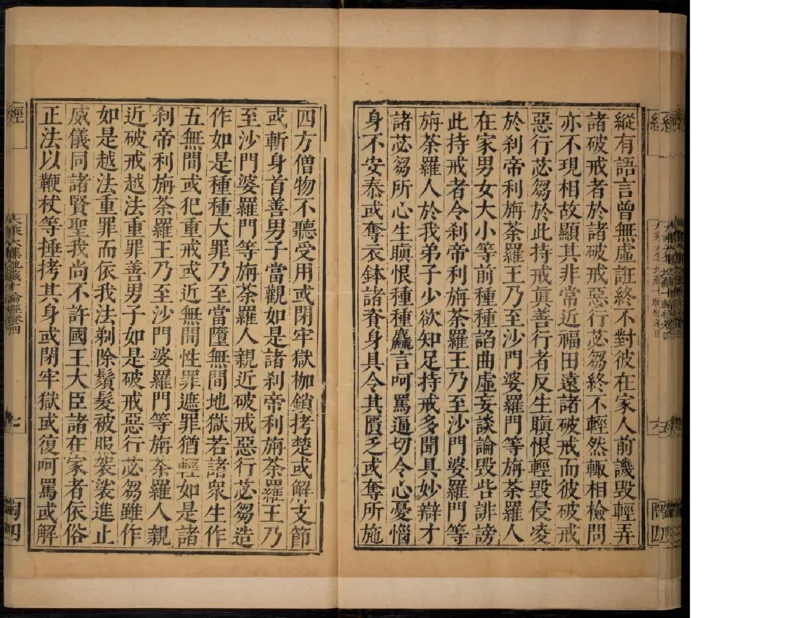 縱有語言曾無虛誑終不對彼在家人前譏毀輕弄
諸破戒者於諸破戒惡行苾芻終不輕然輒相檢問
亦不現相故顯其非常近福田遠諸破戒而彼破戒
惡行苾芻於此持戒真善行者反生瞋恨輕毀侵凌
於剎帝利旃荼羅王乃至沙門婆羅門等旃荼羅人
在家男女大小等前種種諂曲虛妄談論毀呰誹謗
此持戒者令剎帝利旃荼羅王乃至沙門婆羅門等
旃荼羅人於我弟子少欲知足持戒多聞具妙辯才
諸苾芻所心生瞋恨種種麤言呵罵逼切令心憂惱
身不安泰或奪衣鉢諸資身具令其匱乏或奪所施
四方僧物不聽受用或閉牢獄枷鎖拷楚或解支節
或斬身首善男子當觀如是諸剎帝利旃荼羅王乃
至沙門婆羅門等旃荼羅人親近破戒惡行苾芻造
作如是種種大罪乃至當墮無間地獄若諸衆生作
五無間或犯重戒或近無間性罪遮罪猶輕如是諸
剎帝利旃荼羅王乃至沙門婆羅門等旃荼羅人親
近破戒越法重罪善男子如是破戒惡行苾芻雖作
如是越法重罪而依我法剃除鬚髮被服袈裟進止
威儀同諸賢聖我尚不許國王大臣諸在家者依俗
正法以鞭杖等捶拷其身或閉牢獄或復呵罵或解
經
七
陶四